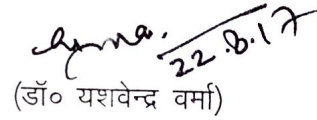 22.8.17
(डॉ० यशवेन्द्र वर्मा)